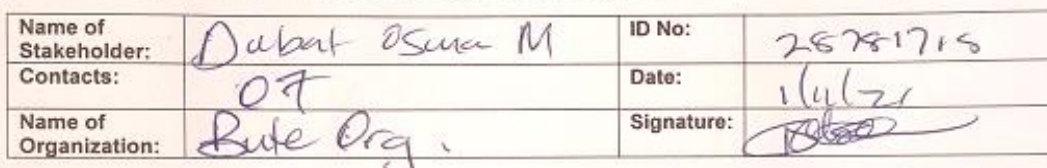 Name of Stakeholder: Dabat Osma M ID No: 28781715
Contacts: 07 Date: 1/11/21
Name of Organization: Bute Org. Signature: